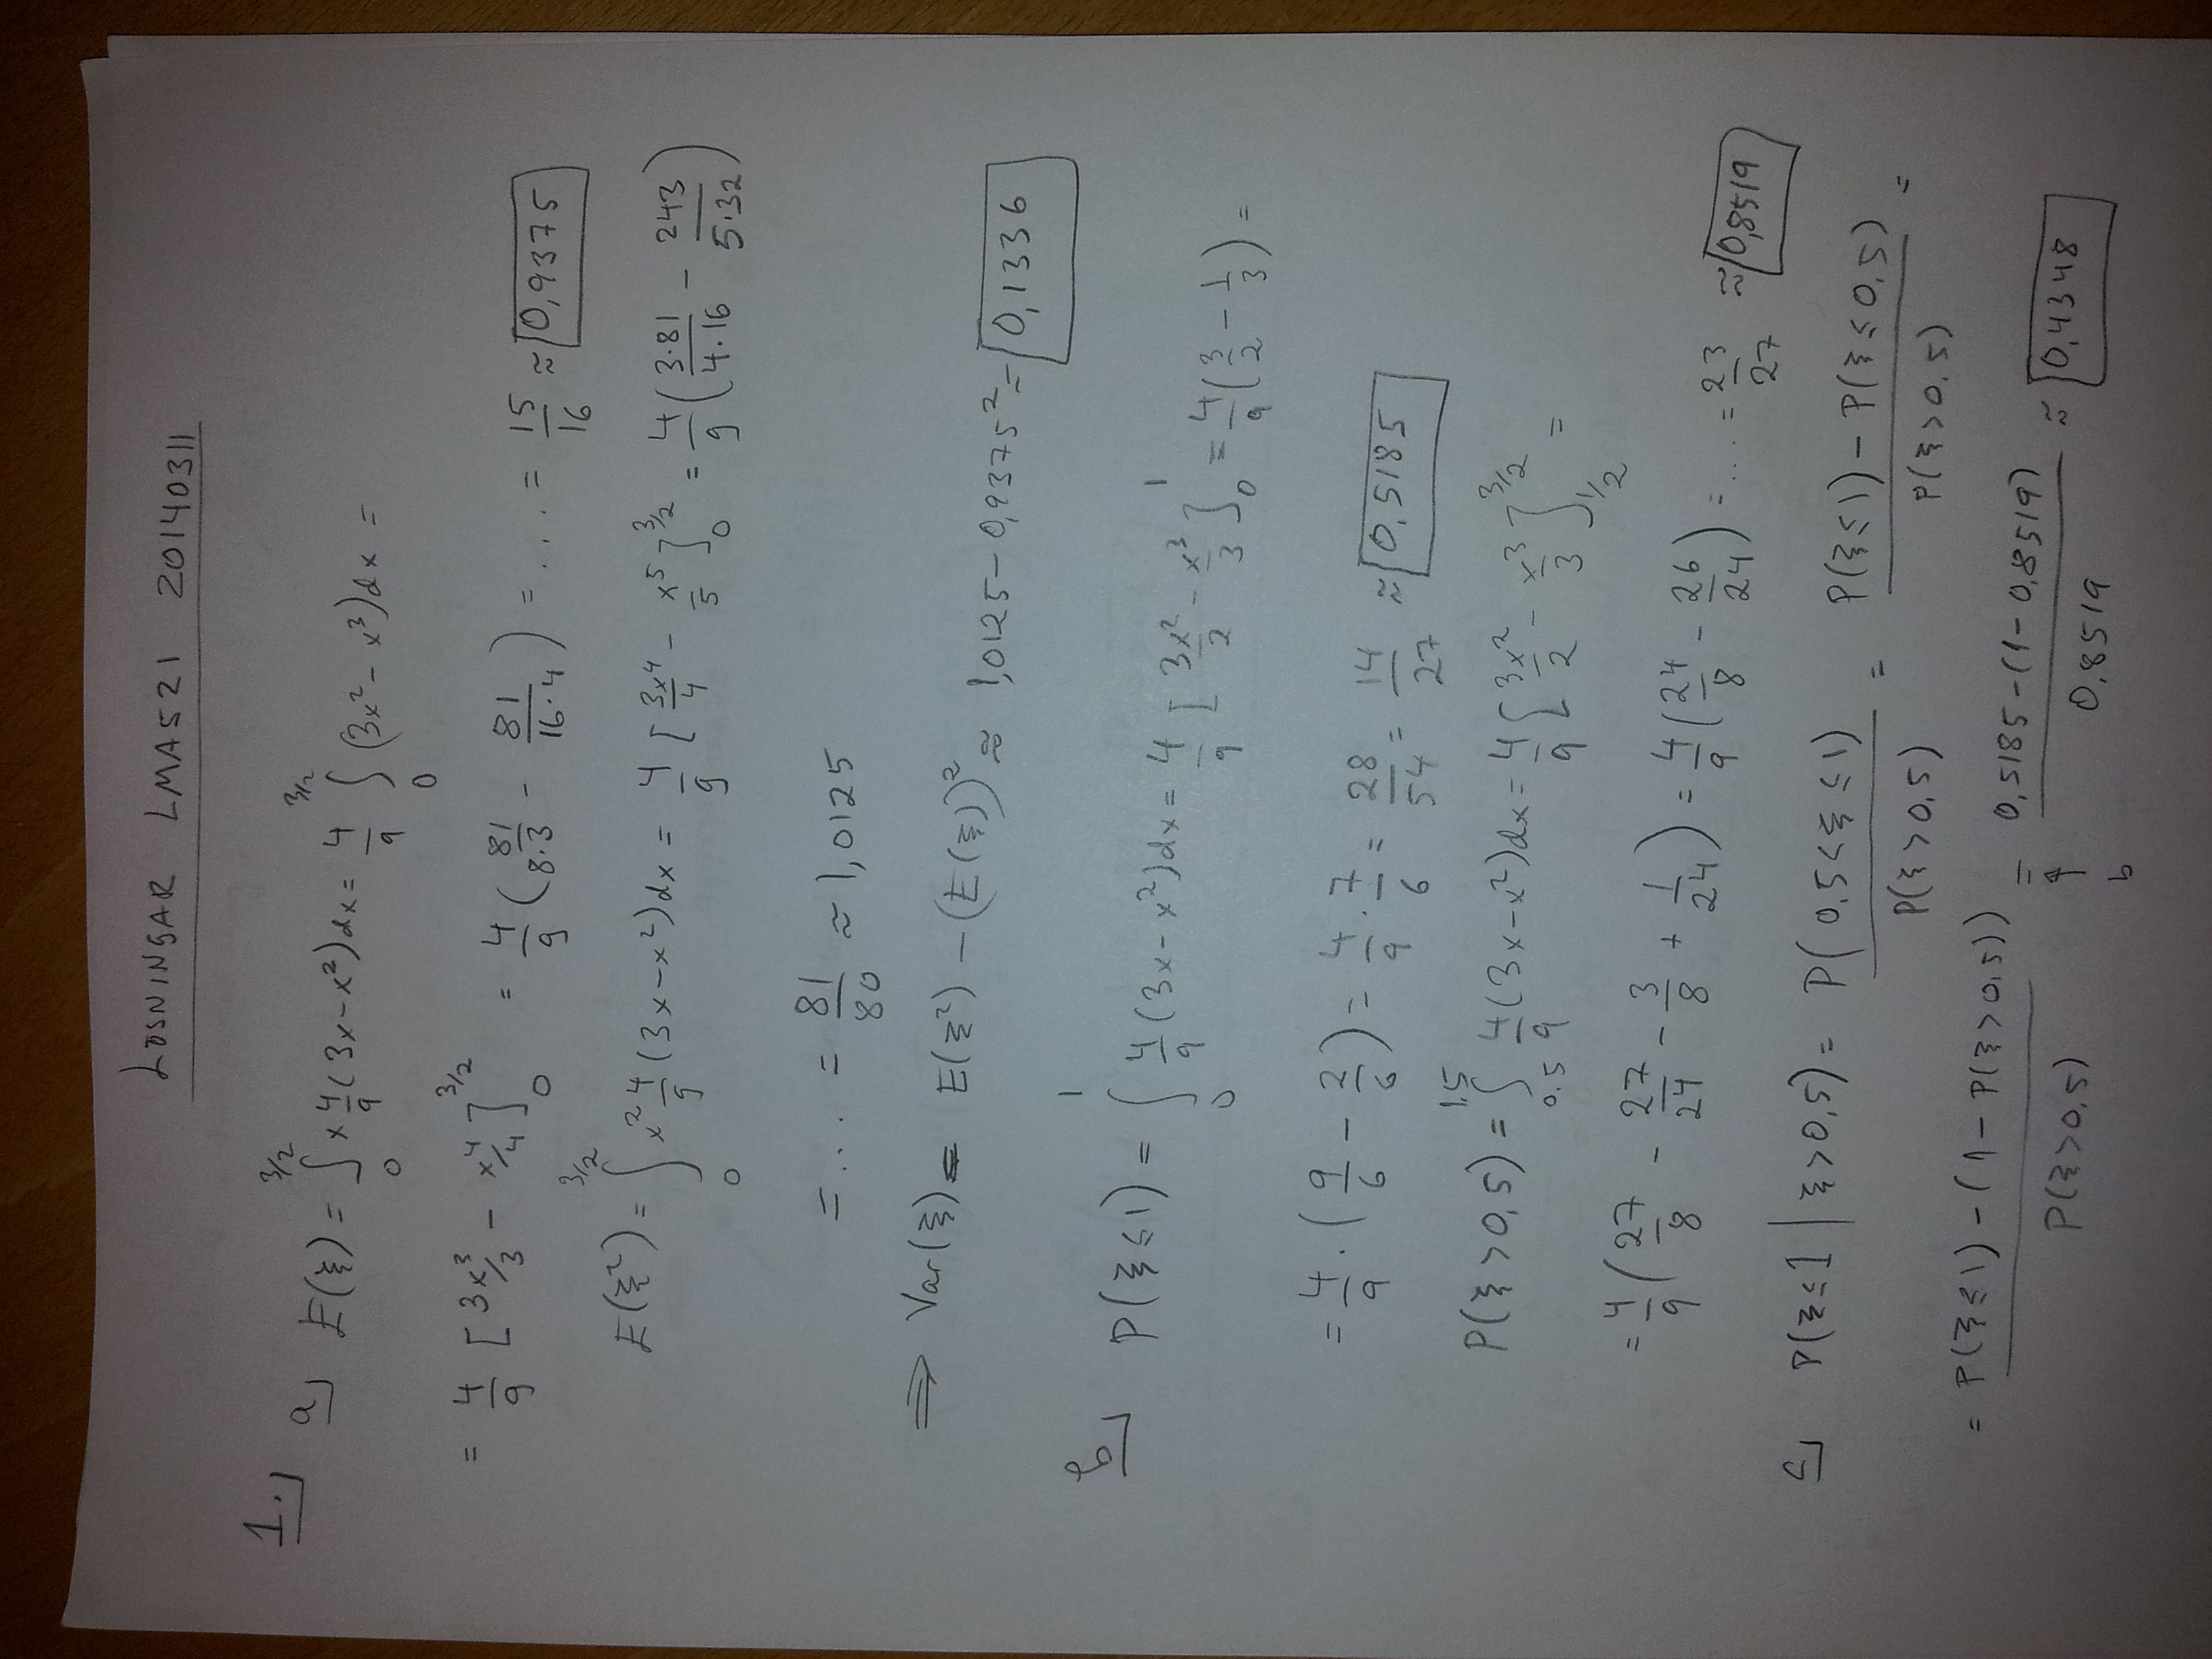 LÖSNINGAR LMA521 20140311
1.) a) E(ξ) = ∫₀^{3/2} x 4/9 (3x-x²)dx = 4/9 ∫₀^{3/2} (3x²-x³)dx =
= 4/9 [3x³/3 - x⁴/4]₀^{3/2} = 4/9 (81/(8·3) - 81/(16·4)) = .... = 15/16 ≈ 0,9375
E(ξ²) = ∫₀^{3/2} x² 4/9 (3x-x²)dx = 4/9 [3x⁴/4 - x⁵/5]₀^{3/2} = 4/9 (3·81/(4·16) - 243/(5·32))
= ... = 81/80 ≈ 1,0125
⇒ Var(ξ) = E(ξ²) - (E(ξ))² ≈ 1,0125 - 0,9375² ≈ 0,1336
b) P(ξ≤1) = ∫₀¹ 4/9 (3x-x²)dx = 4/9 [3x²/2 - x³/3]₀¹ = 4/9 (3/2 - 1/3) =
= 4/9 · (9/6 - 2/6) = 4/9 · 7/6 = 28/54 = 14/27 ≈ 0,5185
P(ξ>0,5) = ∫_{0.5}^{1.5} 4/9 (3x-x²)dx = 4/9 [3x²/2 - x³/3]_{1/2}^{3/2} =
= 4/9 (27/8 - 27/24 - 3/8 + 1/24) = 4/9 (24/8 - 26/24) = .... = 23/27 ≈ 0,8519
c) P(ξ≤1 | ξ>0,5) = P(0,5<ξ≤1) / P(ξ>0,5) = P(ξ≤1) - P(ξ≤0,5) / P(ξ>0,5) =
= P(ξ≤1) - (1 - P(ξ>0,5)) / P(ξ>0,5) = ↑ b 0,5185 - (1 - 0,8519) / 0,8519 ≈ 0,4348